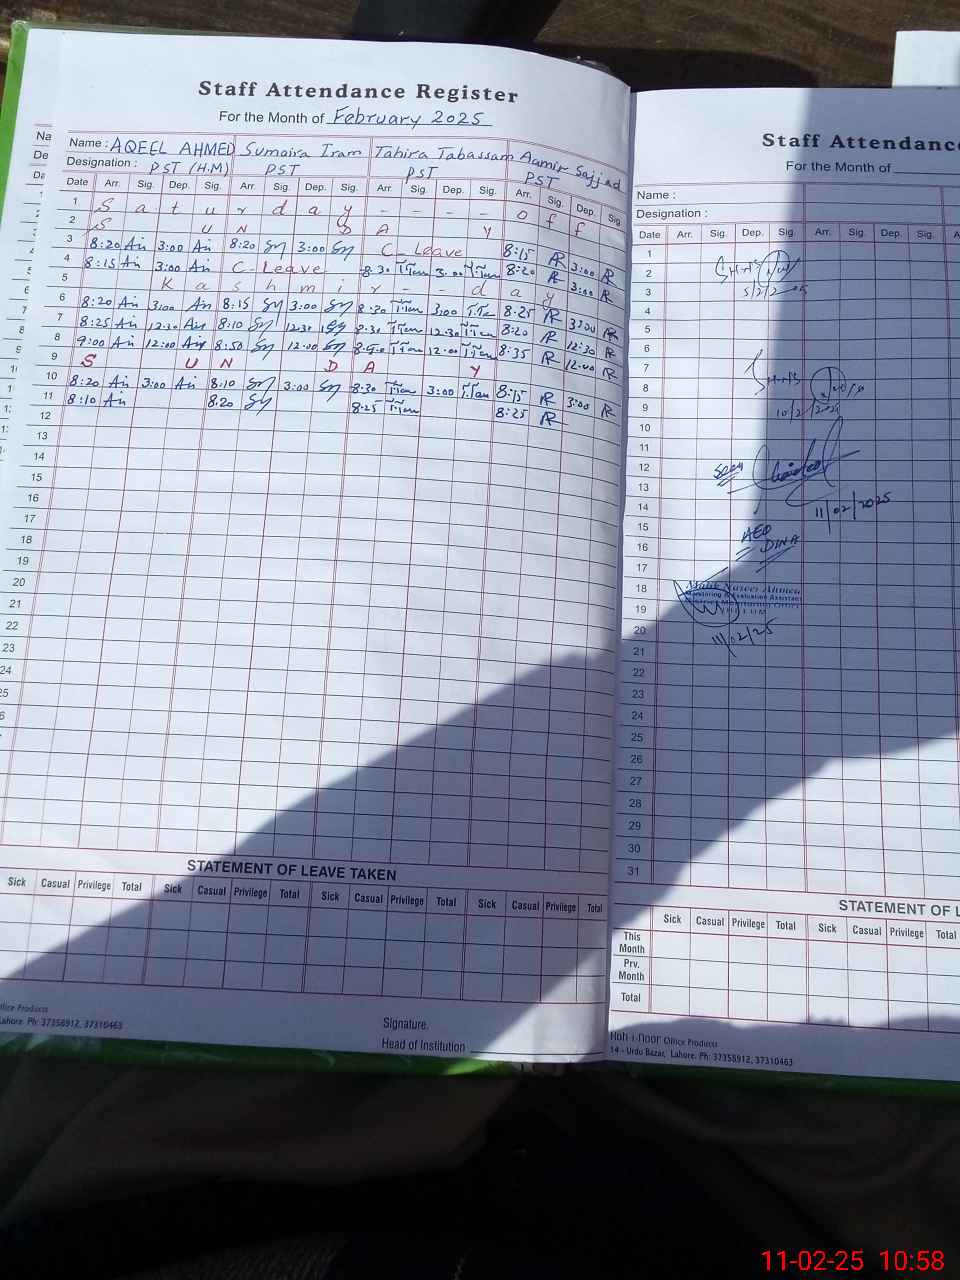 Staff Attendance Register
For the Month of February 2025
Name : AQEEL AHMED Sumaira Iram Tahira Tabassam Aamir Sajjad
Designation : PST (H.M) PST PST PST
Date Arr. Sig. Dep. Sig. Arr. Sig. Dep. Sig. Arr Sig. Dep. Sig. Arr. Sig. Dep. Sig
1 S a t u r d a y - - - - o f f
2 S U N D A Y
3 8:20 3:00 8:20 3:00 C-Leave 8:15 3:00
4 8:15 3:00 C-Leave 8:30 3:00 8:20 3:00
5 K a s h m i r - - d a y
6 8:20 3:00 8:15 3:00 8:30 3:00 8:25 3:00
7 8:25 12:30 8:10 12:30 8:30 12:30 8:20 12:30
8 9:00 12:00 8:50 12:00 8:50 12:00 8:35 12:00
9 S U N D A Y
10 8:20 3:00 8:10 3:00 8:30 3:00 8:15 3:00
11 8:10 8:20 8:25 8:25
12
13
14
15
16
17
18
19
20
21
22
23
24
STATEMENT OF LEAVE TAKEN
Sick Casual Privilege Total Sick Casual Privilege Total Sick Casual Privilege Total Sick Casual Privilege Total
Office Products
Lahore. Ph: 37358912, 37310463
Signature.
Head of Institution
Staff Attendanc
For the Month of
Name :
Designation :
Date Arr. Sig. Dep. Sig. Arr. Sig. Dep. Sig.
1
2
3 5/2/2025
4
5
6
7
8
9 10/2/2025
10
11
12 Seen
13
14 11/02/2025
15 AEO
16 DINA
17
18 Malik Naseer Ahmed
Monitoring & Evaluation Assistant
19
20 11/02/25
21
22
23
24
25
26
27
28
29
30
31
STATEMENT OF L
Sick Casual Privilege Total Sick Casual Privilege Total
This Month
Prv. Month
Total
Koh-i-noor Office Products
14 - Urdu Bazar, Lahore. Ph: 37358912, 37310463
11-02-25 10:58